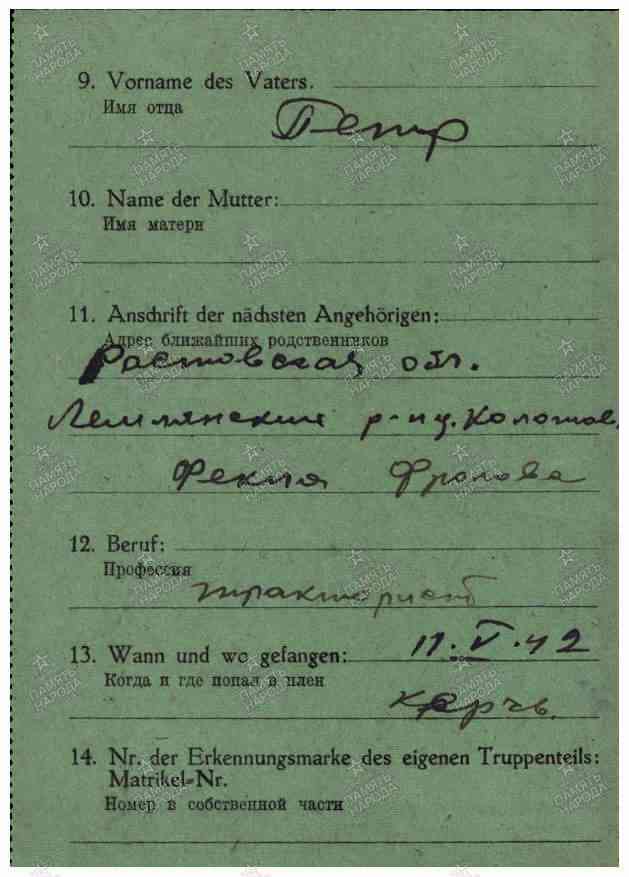 9. Vorname des Vaters.
Имя отца
Петр
10. Name der Mutter:
Имя матери
11. Anschrift der nächsten Angehörigen:
Адрес ближайших родственников
Ростовская обл.
р-н
Фекла Фролова
12. Beruf:
Профессия
тракторист
13. Wann und wo gefangen: 11.V.42
Когда и где попал в плен
Керчь.
14. Nr. der Erkennungsmarke des eigenen Truppenteils:
Matrikel-Nr.
Номер в собственной части
ПАМЯТЬ НАРОДА